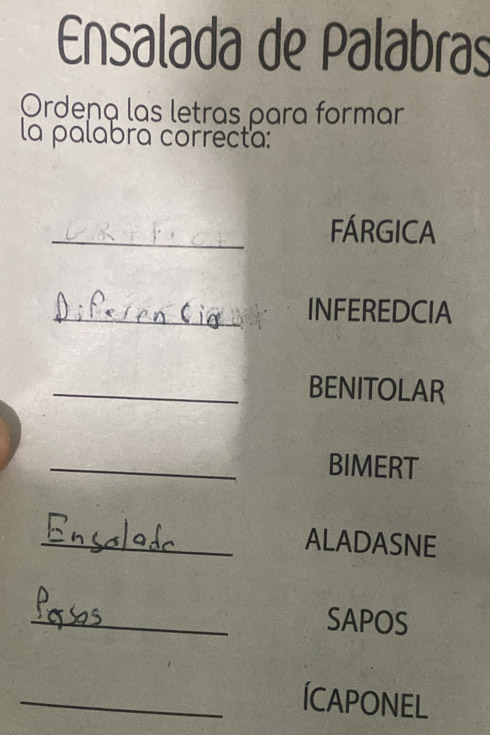 Ensalada de Palabras
Ordena las letras para formar
la palabra correcta:
FÁRGICA
Diferencia INFEREDCIA
BENITOLAR
BIMERT
Ensalada ALADASNE
Pasos SAPOS
ÍCAPONEL